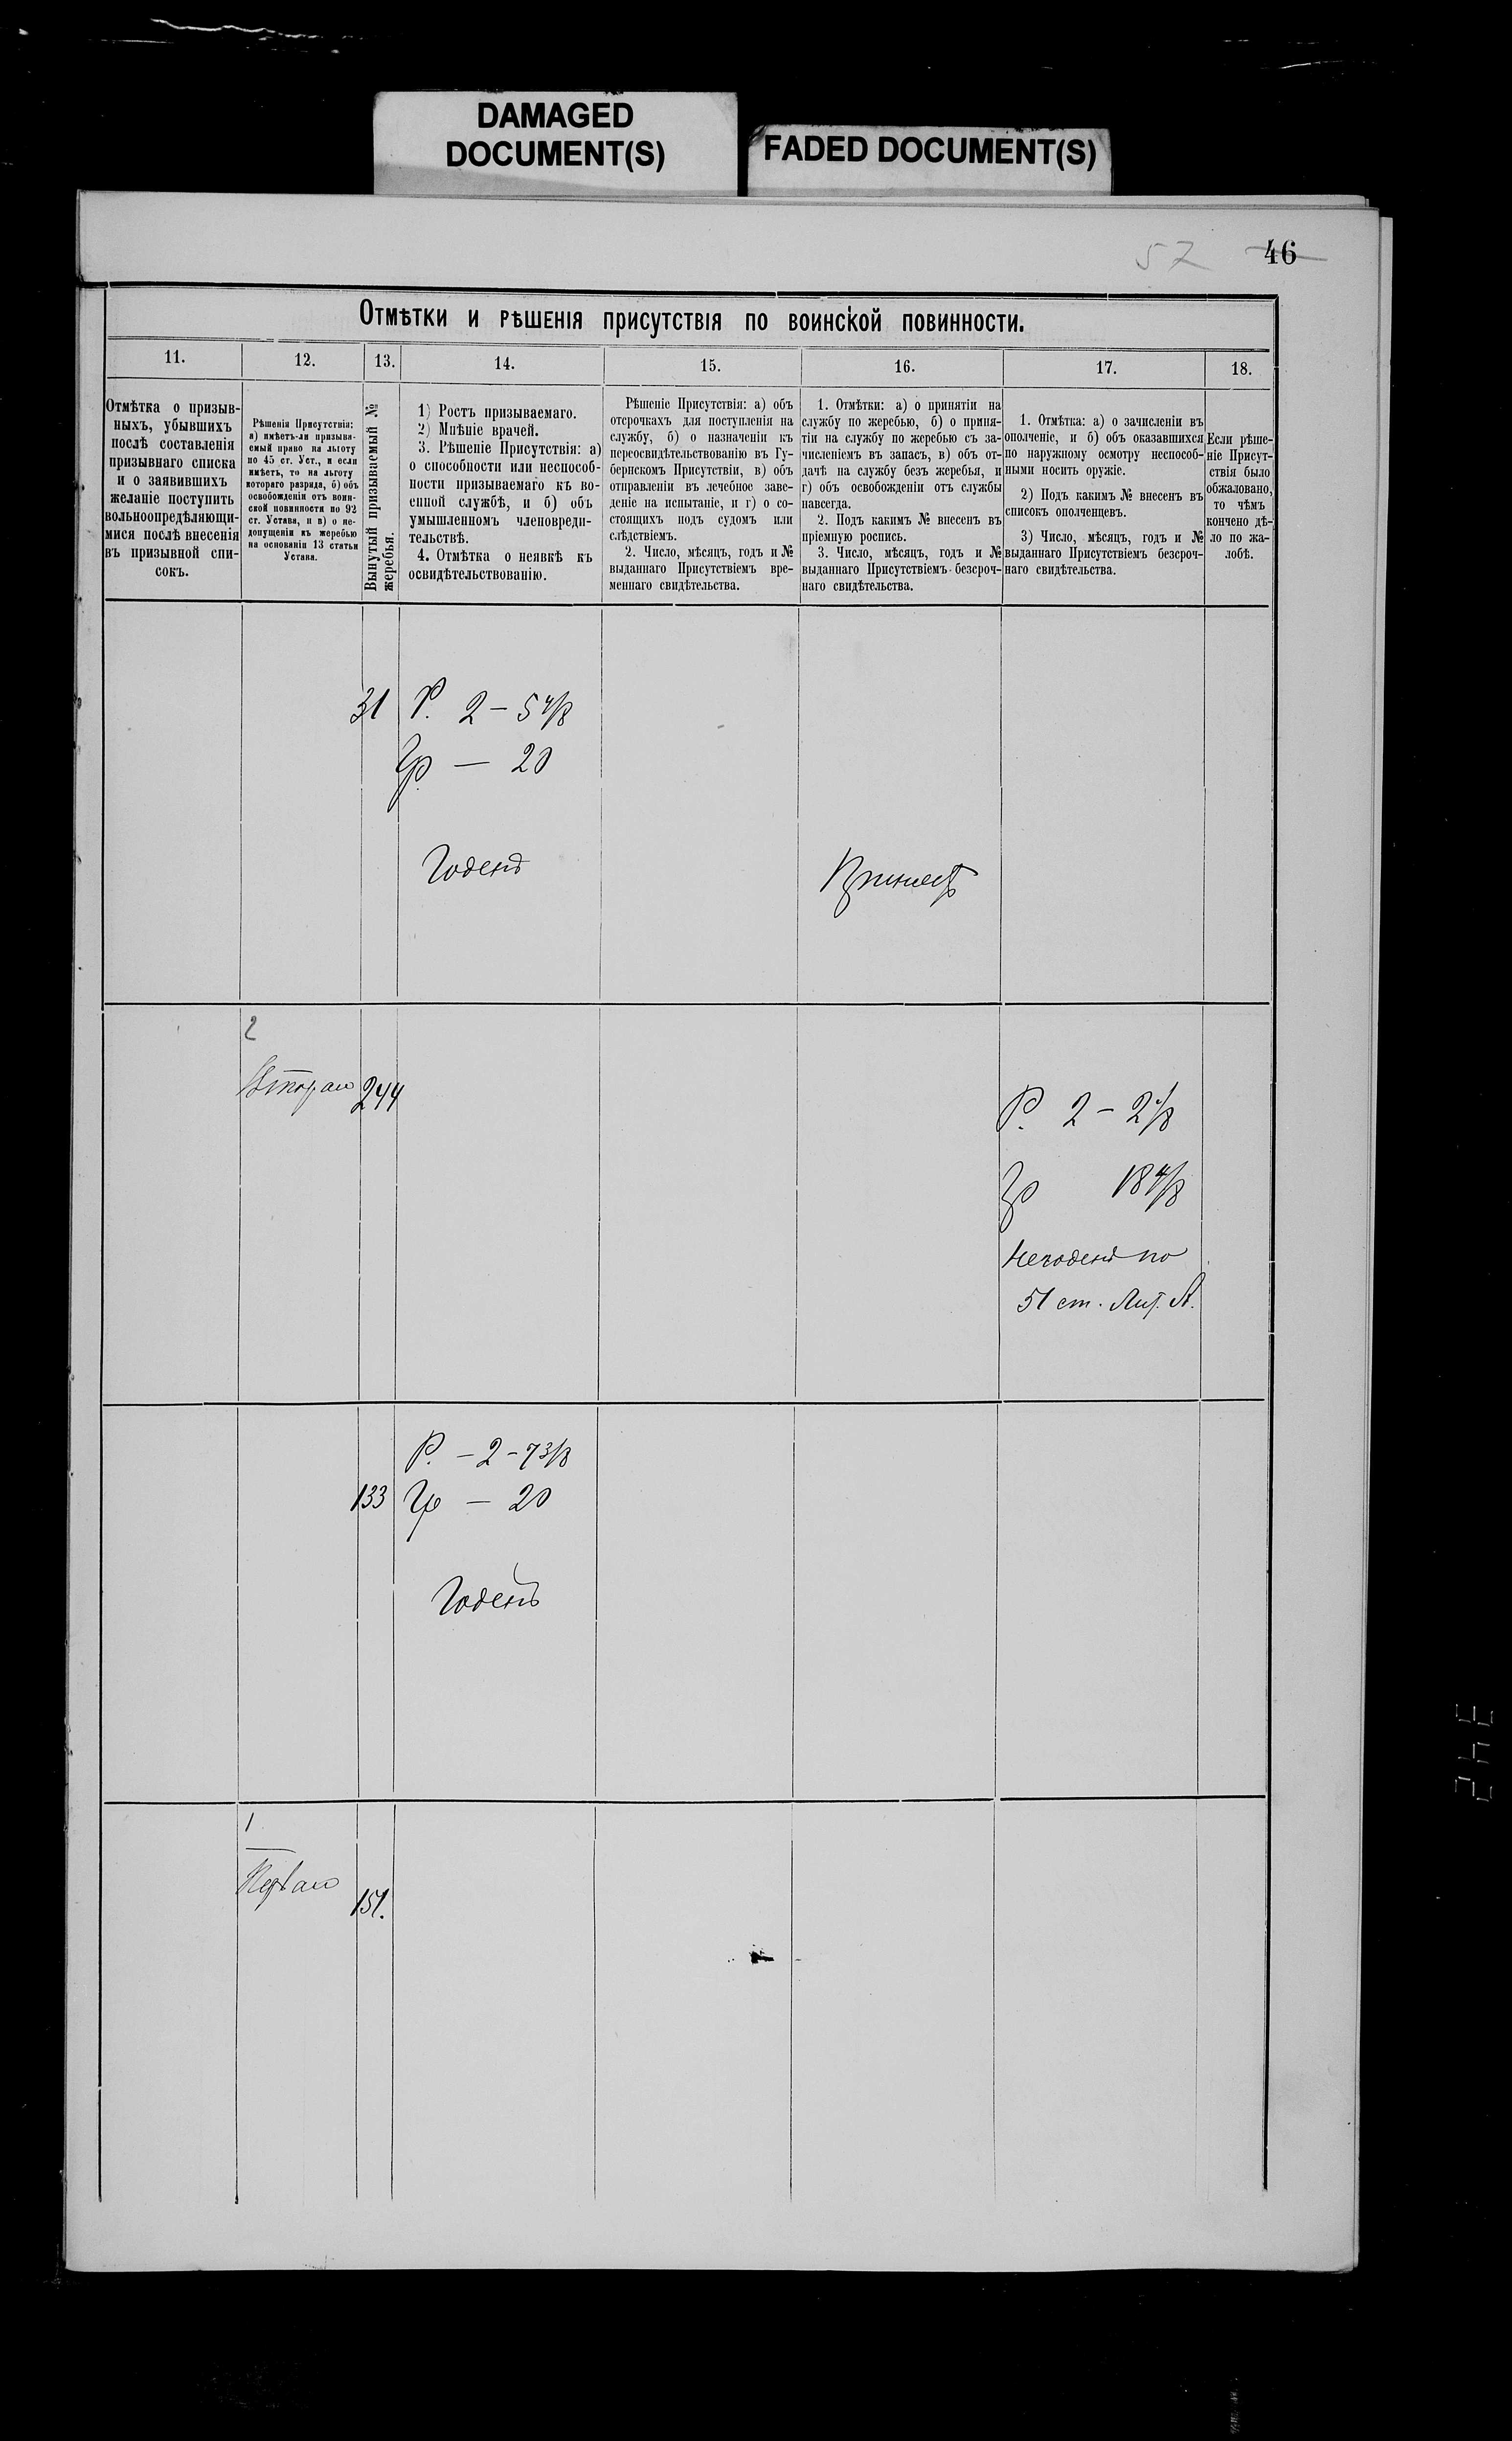 DAMAGED
DOCUMENT(S)
FADED DOCUMENT(S)
57 46
Отмѣтки и рѣшенія присутствія по воинской повинности.
11. 12. 13. 14. 15. 16. 17. 18.
Отмѣтка о призыв-
ныхъ, убывшихъ
послѣ составленія
призывнаго списка
и о заявившихъ
желаніе поступить
вольноопредѣляющи-
мися послѣ внесенія
въ призывной спи-
сокъ.
Рѣшенія Присутствія:
а) имѣетъ-ли призыва-
емый право на льготу
по 45 ст. Уст., и если
имѣетъ, то на льготу
котораго разряда, б) объ
освобожденіи отъ воин-
ской повинности по 92
ст. Устава, и в) о не-
допущеніи къ жеребью
на основаніи 13 статьи
Устава.
Вынутый призываемый №
жеребья.
1) Ростъ призываемаго.
2) Мнѣніе врачей.
3. Рѣшеніе Присутствія: а)
о способности или неспособ-
ности призываемаго къ во-
енной службѣ, и б) объ
умышленномъ членовреди-
тельствѣ.
4. Отмѣтка о неявкѣ къ
освидѣтельствованію.
Рѣшеніе Присутствія: а) объ
отсрочкахъ для поступленія на
службу, б) о назначеніи къ
переосвидѣтельствованію въ Гу-
бернскомъ Присутствіи, в) объ
отправленіи въ лечебное заве-
деніе на испытаніе, и г) о со-
стоящихъ подъ судомъ или
слѣдствіемъ.
2. Число, мѣсяцъ, годъ и №
выданнаго Присутствіемъ вре-
меннаго свидѣтельства.
1. Отмѣтки: а) о принятіи на
службу по жеребью, б) о приня-
тіи на службу по жеребью съ за-
численіемъ въ запасъ, в) объ от-
дачѣ на службу безъ жеребья, и
г) объ освобожденіи отъ службы
навсегда.
2. Подъ какимъ № внесенъ въ
пріемную роспись.
3. Число, мѣсяцъ, годъ и №
выданнаго Присутствіемъ безсроч-
наго свидѣтельства.
1. Отмѣтка: а) о зачисленіи въ
ополченіе, и б) объ оказавшихся
по наружному осмотру неспособ-
ными носить оружіе.
2) Подъ какимъ № внесенъ въ
списокъ ополченцевъ.
3) Число, мѣсяцъ, годъ и №
выданнаго Присутствіемъ безсроч-
наго свидѣтельства.
Если рѣше-
ніе Присут-
ствія было
обжаловано,
то чѣмъ
кончено дѣ-
ло по жа-
лобѣ.
31 Р. 2 – 5 4/8
Гр. — 20
Годенъ
Принятъ
2
Вторая 244
Р. 2 – 2 1/8
Гр 18 4/8
Негоденъ по
51 ст. Лит. А.
Р. – 2 – 7 3/8
133 Гр — 20
Годенъ
1
Первая
151.
342